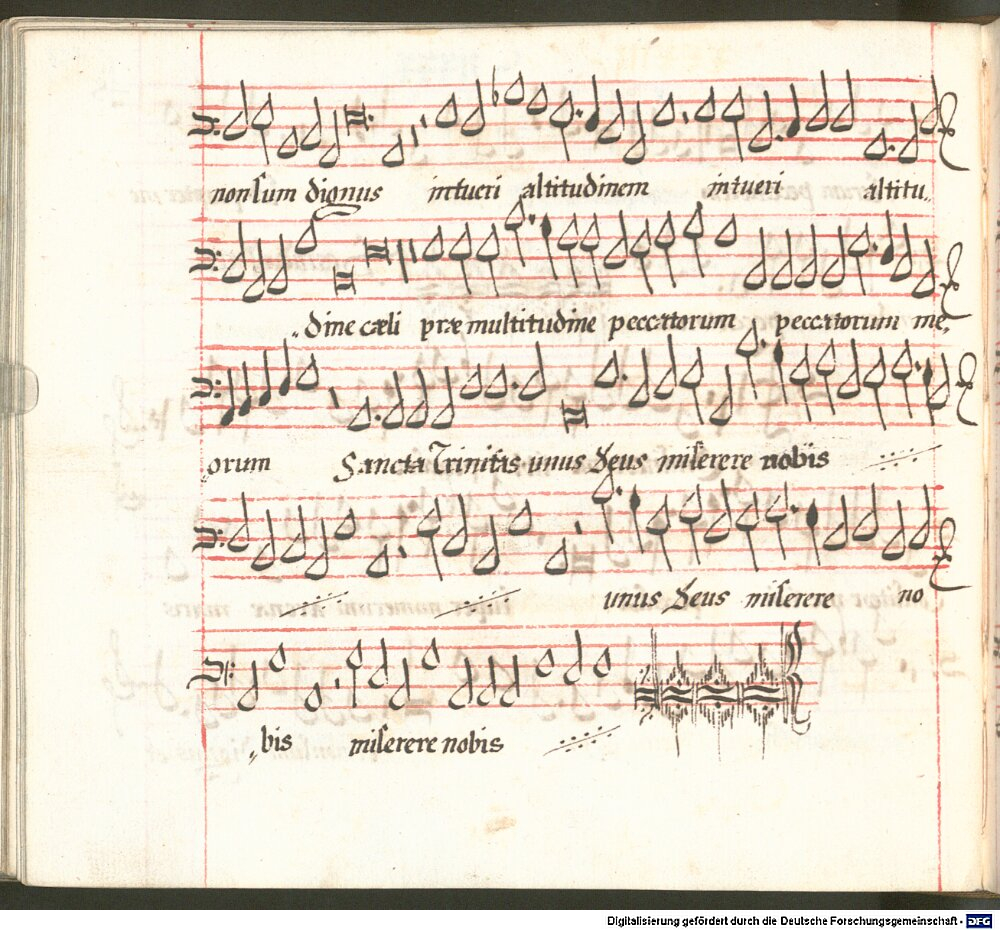 non sum dignus intueri altitudinem intueri altitu„
„dine cæli præ multitudine peccatorum peccatorum me„
„orum Sancta Trinitas unus Deus miserere nobis
unus Deus miserere no
„bis miserere nobis
Digitalisierung gefördert durch die Deutsche Forschungsgemeinschaft - DFG